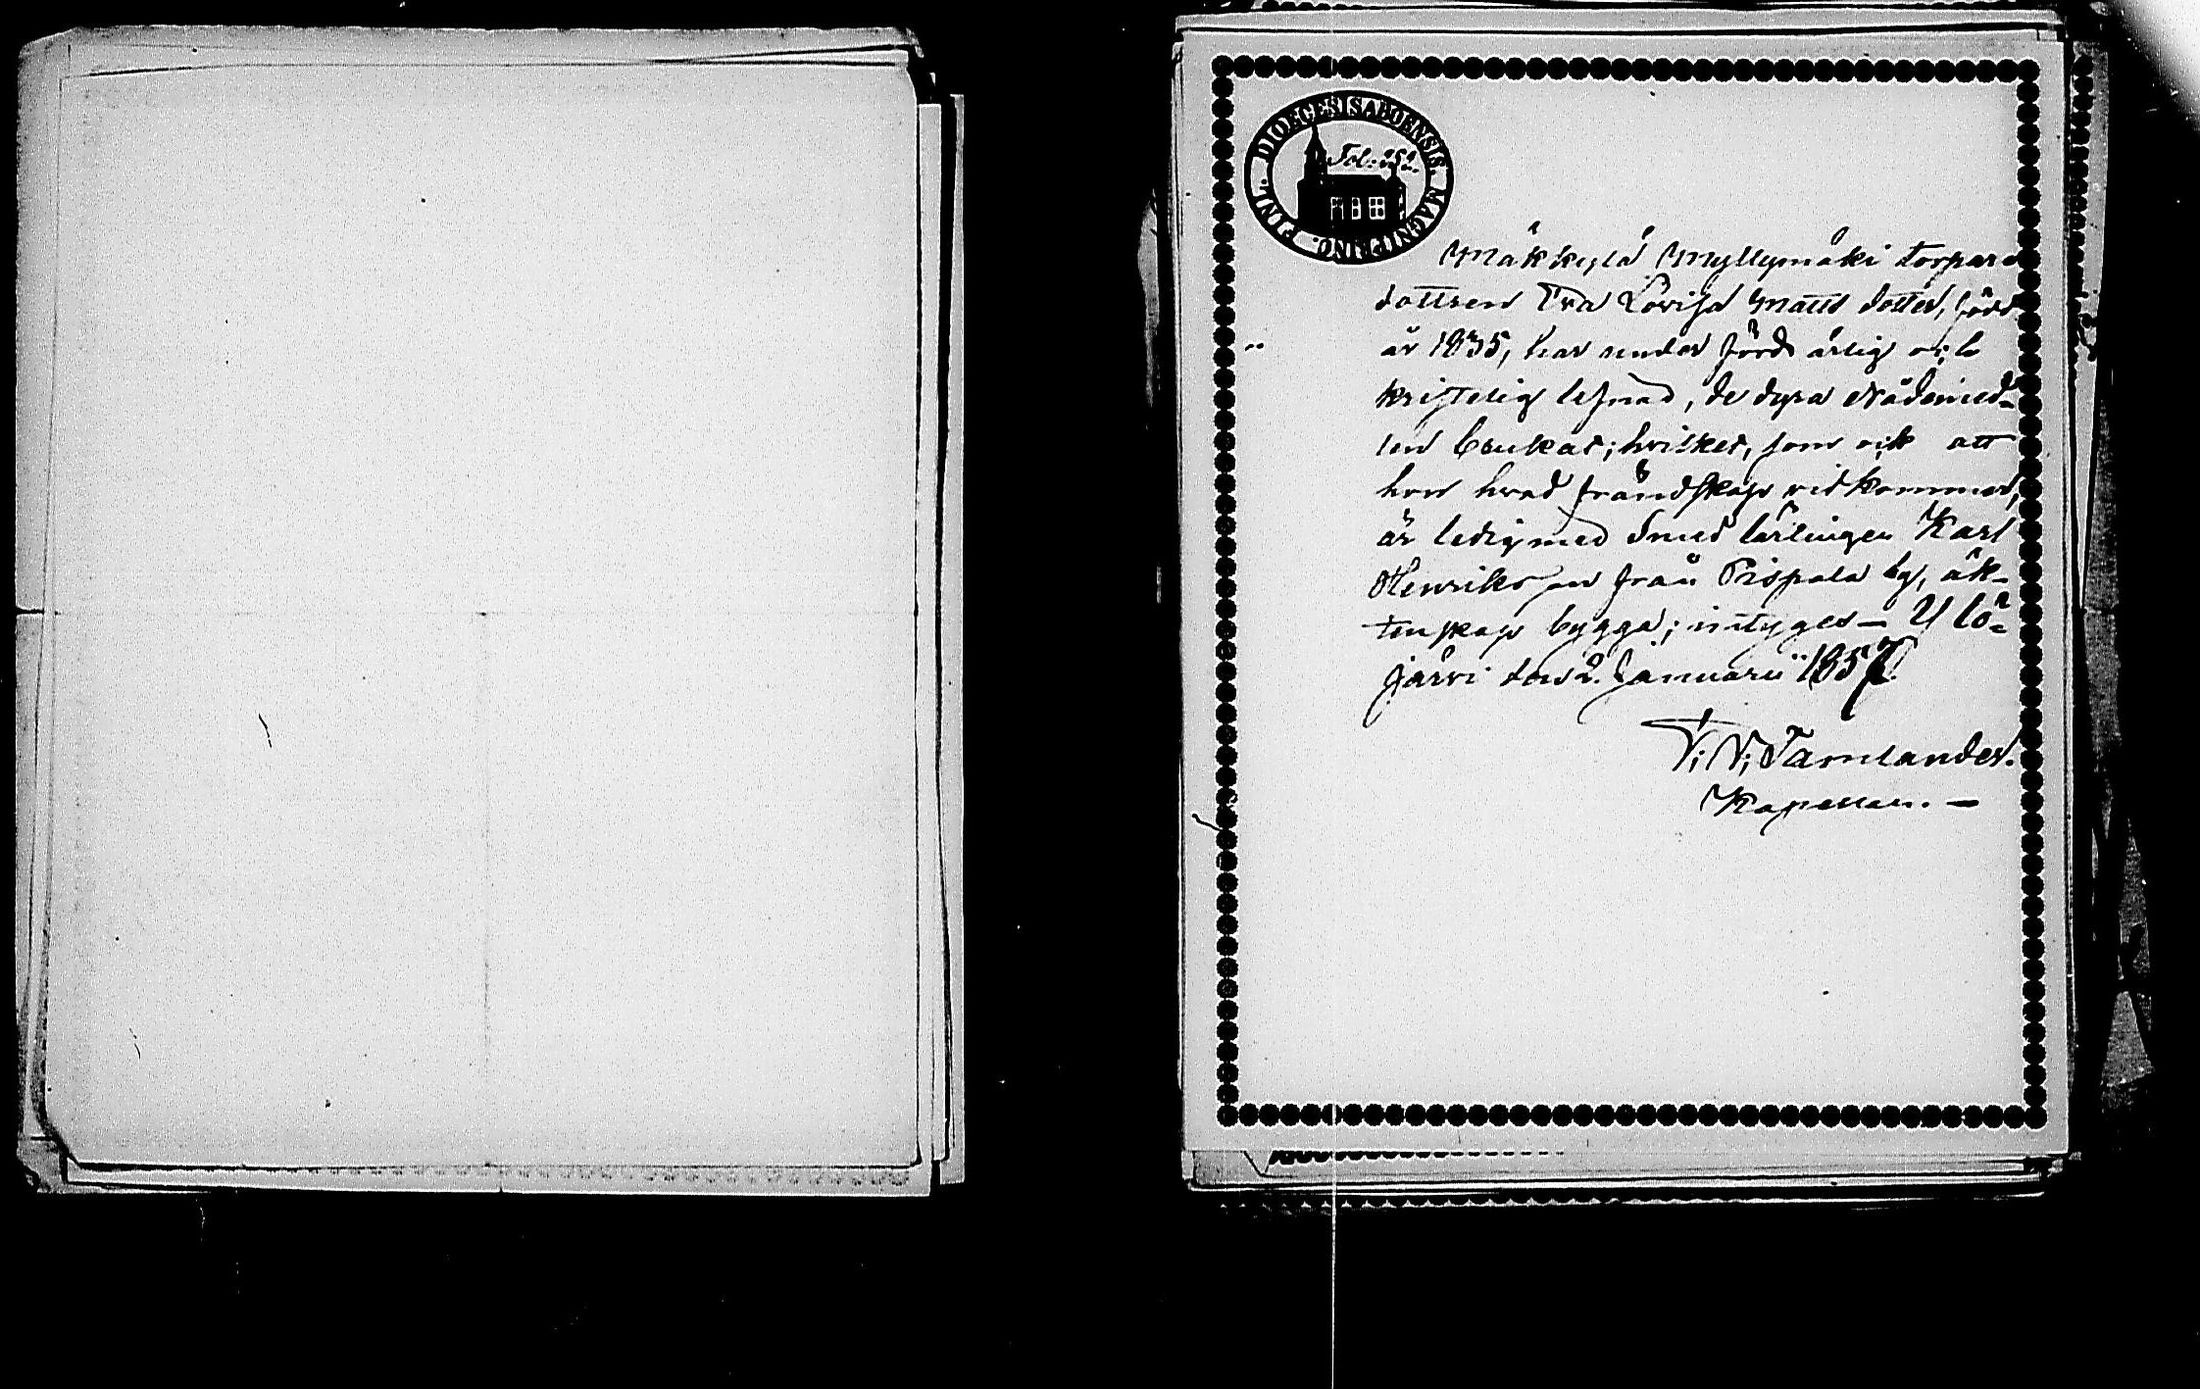 DIOECESIS ABOENSIS. MAGNI PRINC. FINL.
Fol: 252.
Mäkkylä Myllymäki torpare
dottren Eva Lovisa Matts dotter, född
år 1835, har under förd ärlig och
kristelig lefnad, de dyra Nådemed-
len brukat; hvilket, som ock att
hon hvad frändskap vidkommer,
är ledig med Smed lärlingen Karl
Henriksson från Pispala by, äk-
tenskap bygga; intyges — Ylö-
järvi den 2. Januarii 1857.
Tamlander.
Kapellan. —